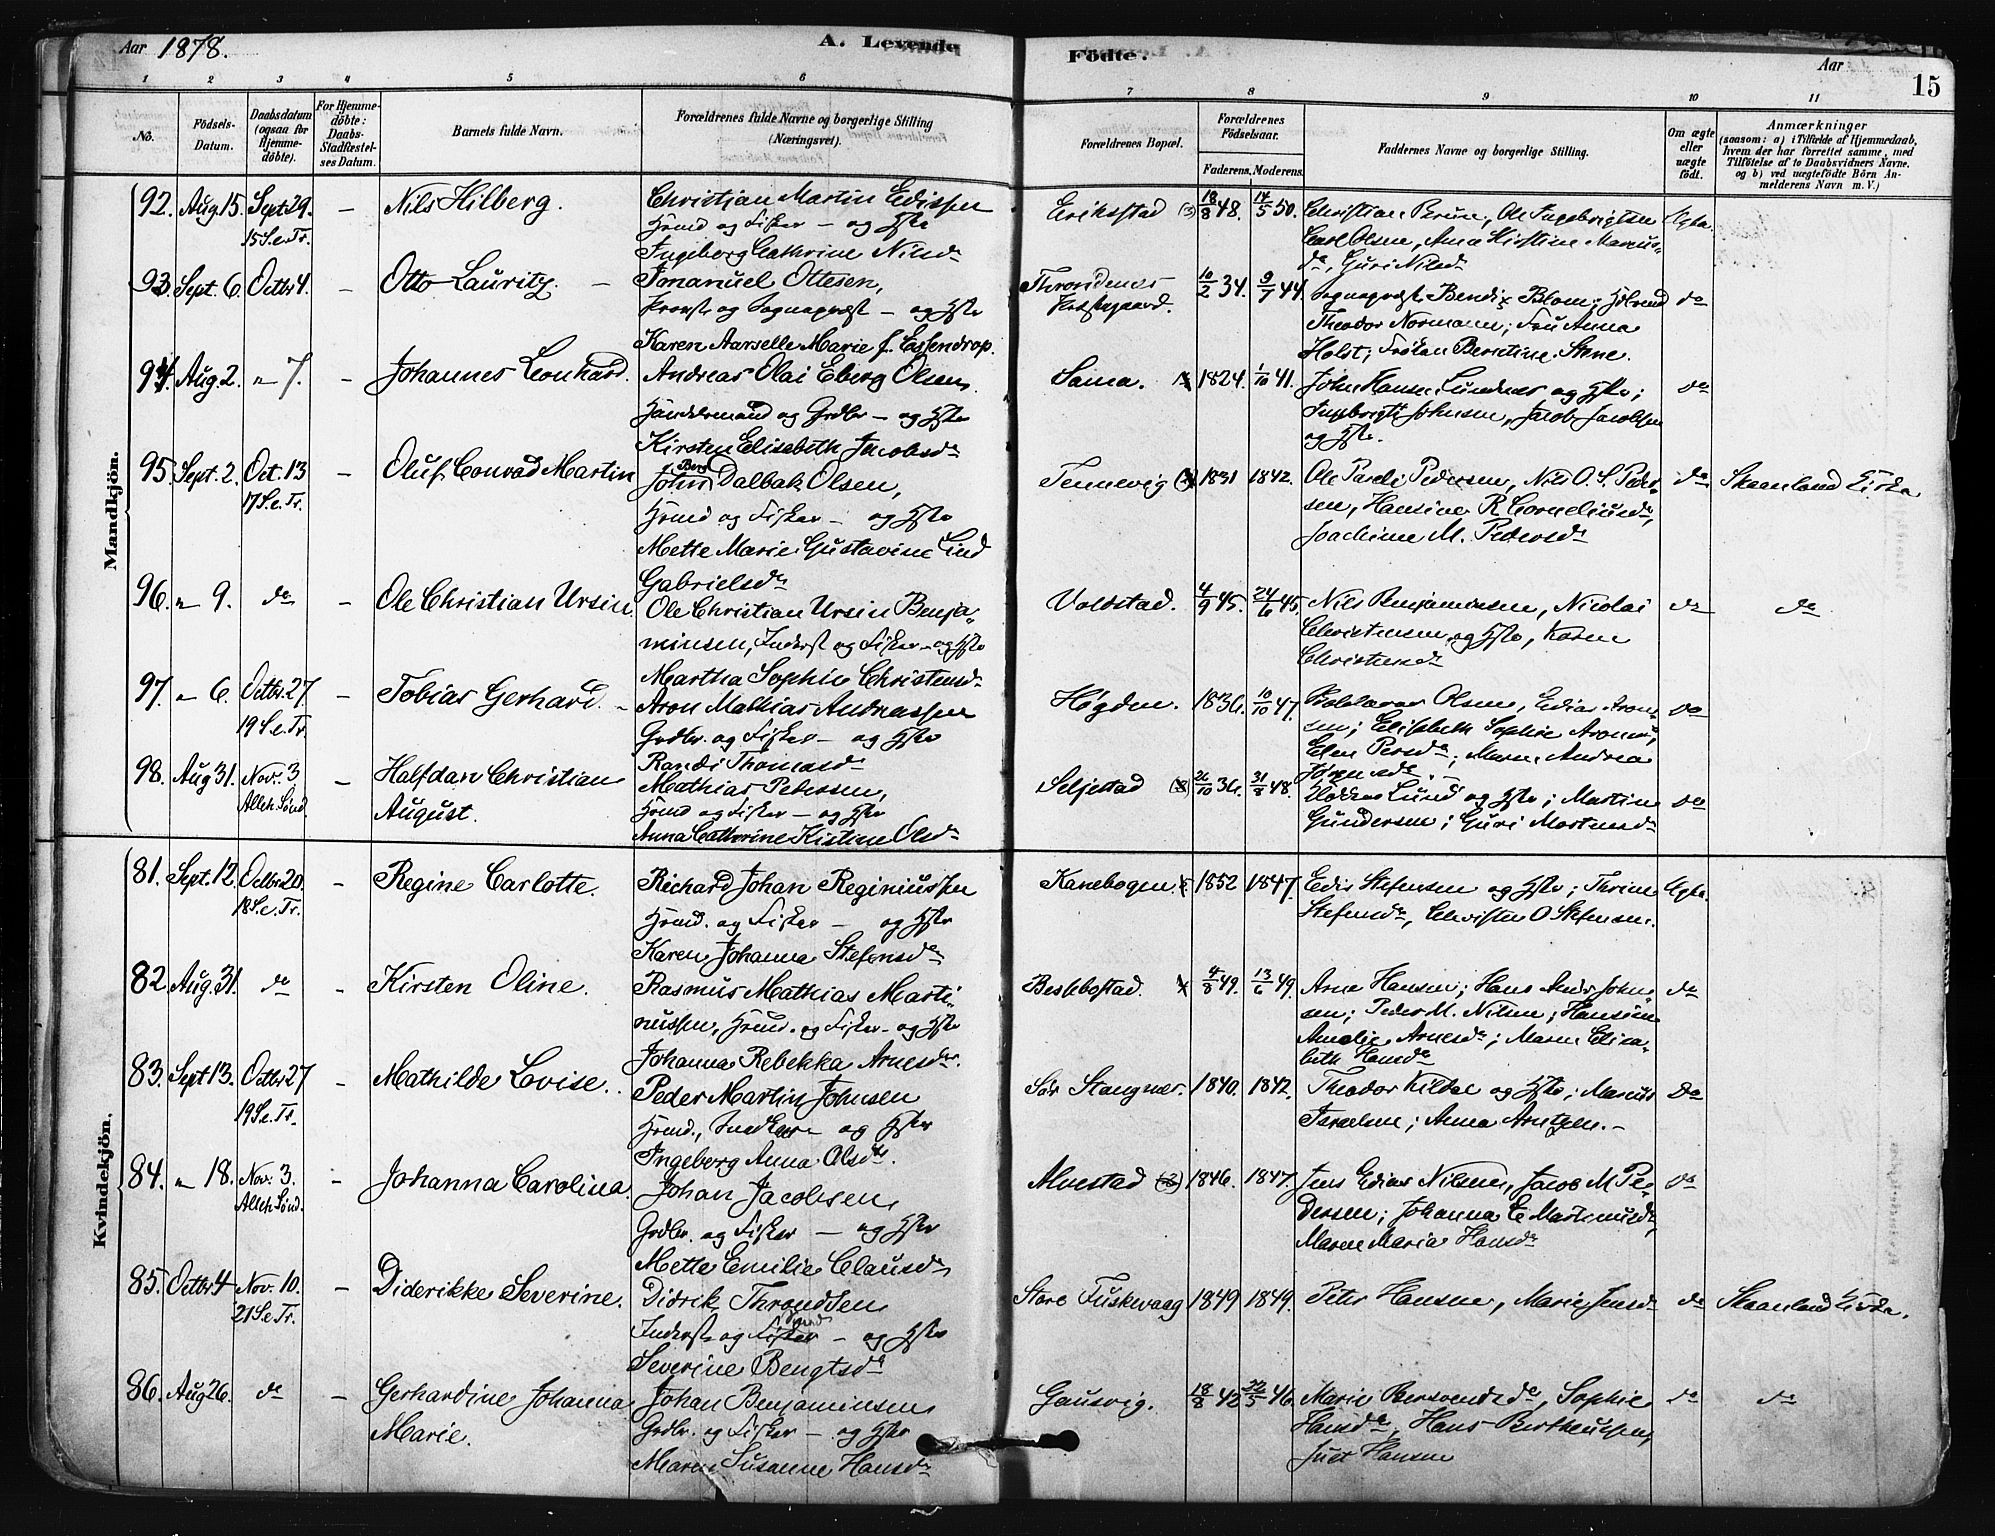 Aar 1878. A. Levende Födte. Aar 15
1 2 3 4 5 6 7 8 9 10 11
No. Födsels-Datum. Daabsdatum (ogsaa for Hjemmedöbte). For Hjemmedöbte: Daabs-Stadfæstelses Datum. Barnets fulde Navn. Forældrenes fulde Navne og borgerlige Stilling (Næringsvei). Forældrenes Bopæl. Forældrenes Födselsaar. Faderens. Moderens. Faddernes Navne og borgerlige Stilling. Om ægte eller uægte födt. Anmærkninger (saasom: a) i Tilfælde af Hjemmedaab, hvem der har forrettet samme, med Tilföielse af to Daabsvidners Navne, og b) ved uægtefödte Börn Anmelderens Navn m. V.)
Mandkjön.
92. Aug. 15. Sept 29. – Nils Hilberg. Christian Martin Edissen Eriksstad (3) 18/8 48. 14/5 50. Christian Brun, Ole Ingebrigtsen Ægte.
15 S. e. Tr. og Fisker – og Hstr Carl Olsen, Ana Kirstine Marcus-
Ingeborg Cathrine Nilsd. d., Guri Nilsd.
93. Sept. 6. Octbr 4. – Otto Lauritz. Imanuel Ottesen, Throndenes 10/2 34. 9/7 44. Sognepræst Bendix Blom; do
Provst og Sognepræst – og Hstr Præstegaard. Theodor Normann; Fru Anna
Karen Marie f. Essendrop. Holst; Frøken Berntine Stene.
94. Aug. 2. " 7. – Johannes Leonhard. Andreas Olai Eberg Olsen Sama. 1824. 1/10 41. John Hansen og Hstr; do
Haandværmand og Grdbr – og Hstr Ingebrigt Johnsen, Jacob Jacobsen
Kirsten Elisabeth Jacobsd. og Hstr.
95. Sept. 2. Oct. 13 – Oluf Conrad Martin John Berg Dalbak Olsen, Tennevig 1831 1842. Ole Pedersen, Nils O. S. Peder- do Skaanland Kirke
17 S. e. Tr. og Fisker – og Hstr sen, Hansine R Corneliusd.,
Mette Marie Gustavine Lind Joachime M. Pedersd.
Gabrielsd.
96. " 9. do – Ole Christian Ursin. Ole Christian Ursin Benja- Voldstad. 4/9 45. 24/6 45. Nils Benjaminsen, Nicolai do do
minsen, Inderst og Fisker – og Hstr Christensen og Hstr, Karen
Martha Sophie Christensd. Christensd.
97. " 6. Octbr. 27 – Tobias Gerhard. Aron Mathias Andreassen Høgden. 1836. 10/10 47. Olsen, Edias Aron- do
19 S. e. Tr. Grdbr. og Fisker – og Hstr sen; Elisabeth Sophie Aronsd.;
Randi Thomasd. Elen Persd.; Maren Andrea
98. Aug 31. Nov. 3 – Halfdan Christian Mathias Pedersen, Seljestad (3) 26/10 36. 31/8 48. Lund og Hstr; Martin do
Alleh. Sönd. August. og Fisker – og Hstr Gundersen; Guri Mortensd.
Anna Cathrine Kistine Olsd.
Kvindekjön.
81. Sept. 12. Octbr 20. – Regine Carlotte. Richard Johan Reginiussen Kanebogen. 1852 1847. Edis Stefensen og Hstr; Thrine Ægte.
18 S. e. Tr. og Fisker – og Hstr Stefensd., Christen O Stefensen.
Karen Johanna Stefensd.
82. Aug. 31. do – Kirsten Oline. Rasmus Mathias Marti- Beslebostad. 4/8 49. 13/6 49. Arne Hansen; Hans Andr. John- do
nussen, og Fisker – og Hstr sen; Peder M. Nilsen; Hansine
Johanna Rebekka Arnesd. Amalie Arnesd.; Maren Elisa-
beth Hansd.
83. Sept 13. Octbr 27 – Mathilde Lovise. Peder Martin Johnsen Sør Stangnes. 1840. 1842. Theodor Kildal og Hstr; Marcus Do
19 S. e. Tr. Snedker – og Hstr Israelsen; Anna Arntzen. –
Ingeborg Anna Olsd.
84. " 18. Nov. 3. – Johanna Carolina. Johan Jacobsen Alvestad 1846. 1847. Jens Edias Nilsen, Jacob M Pe- do
Alleh. Sönd. Grdbr. og Fisker – og Hstr dersen; Johanna E Martinusd.
Mette Emilie Clausd. Maren Maria Hansd.
85. Octbr 4 Nov. 10. – Diderikke Severine. Didrik Throndsen Store Fuskevaag 1849 1849. Peter Hansen, Marie Jensd. do Skaanland Kirke.
21 S. e. Tr. Inderst og Fisker – og Hstr
Severine Bengtsd.
86. Aug 26. do – Gerhardine Johanna Johan Benjaminsen Gausvig. 18/8 42 22/5 46. Marie d., Sophie do do
Marie. Grdbr. og Fisker – og Hstr Hansd., Hans Bertheussen,
Maren Susanne Hansd. Just Hansen